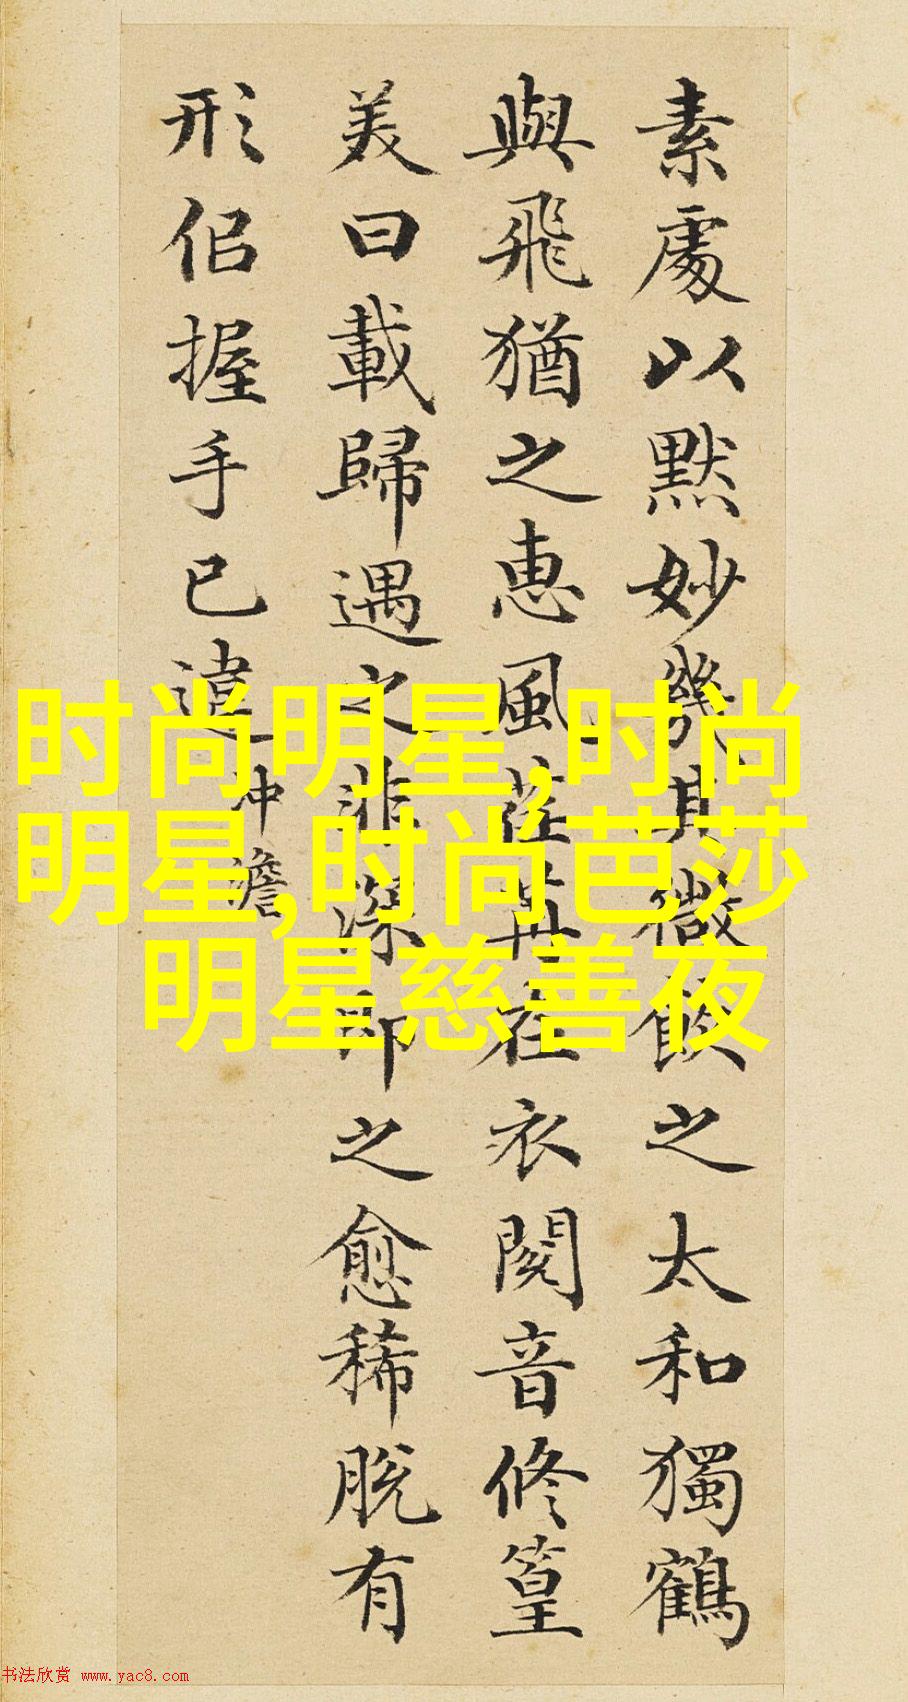 素處以默妙幾其微飲之太和獨鶴
與飛猶之惠風荏苒在衣閱音修篁
美曰載歸遇之非深即之愈稀脫有
形侣握手已違冲澹
时尚明星,时尚
明星,时尚芭莎
明星慈善夜
书法欣赏 www.yac8.com